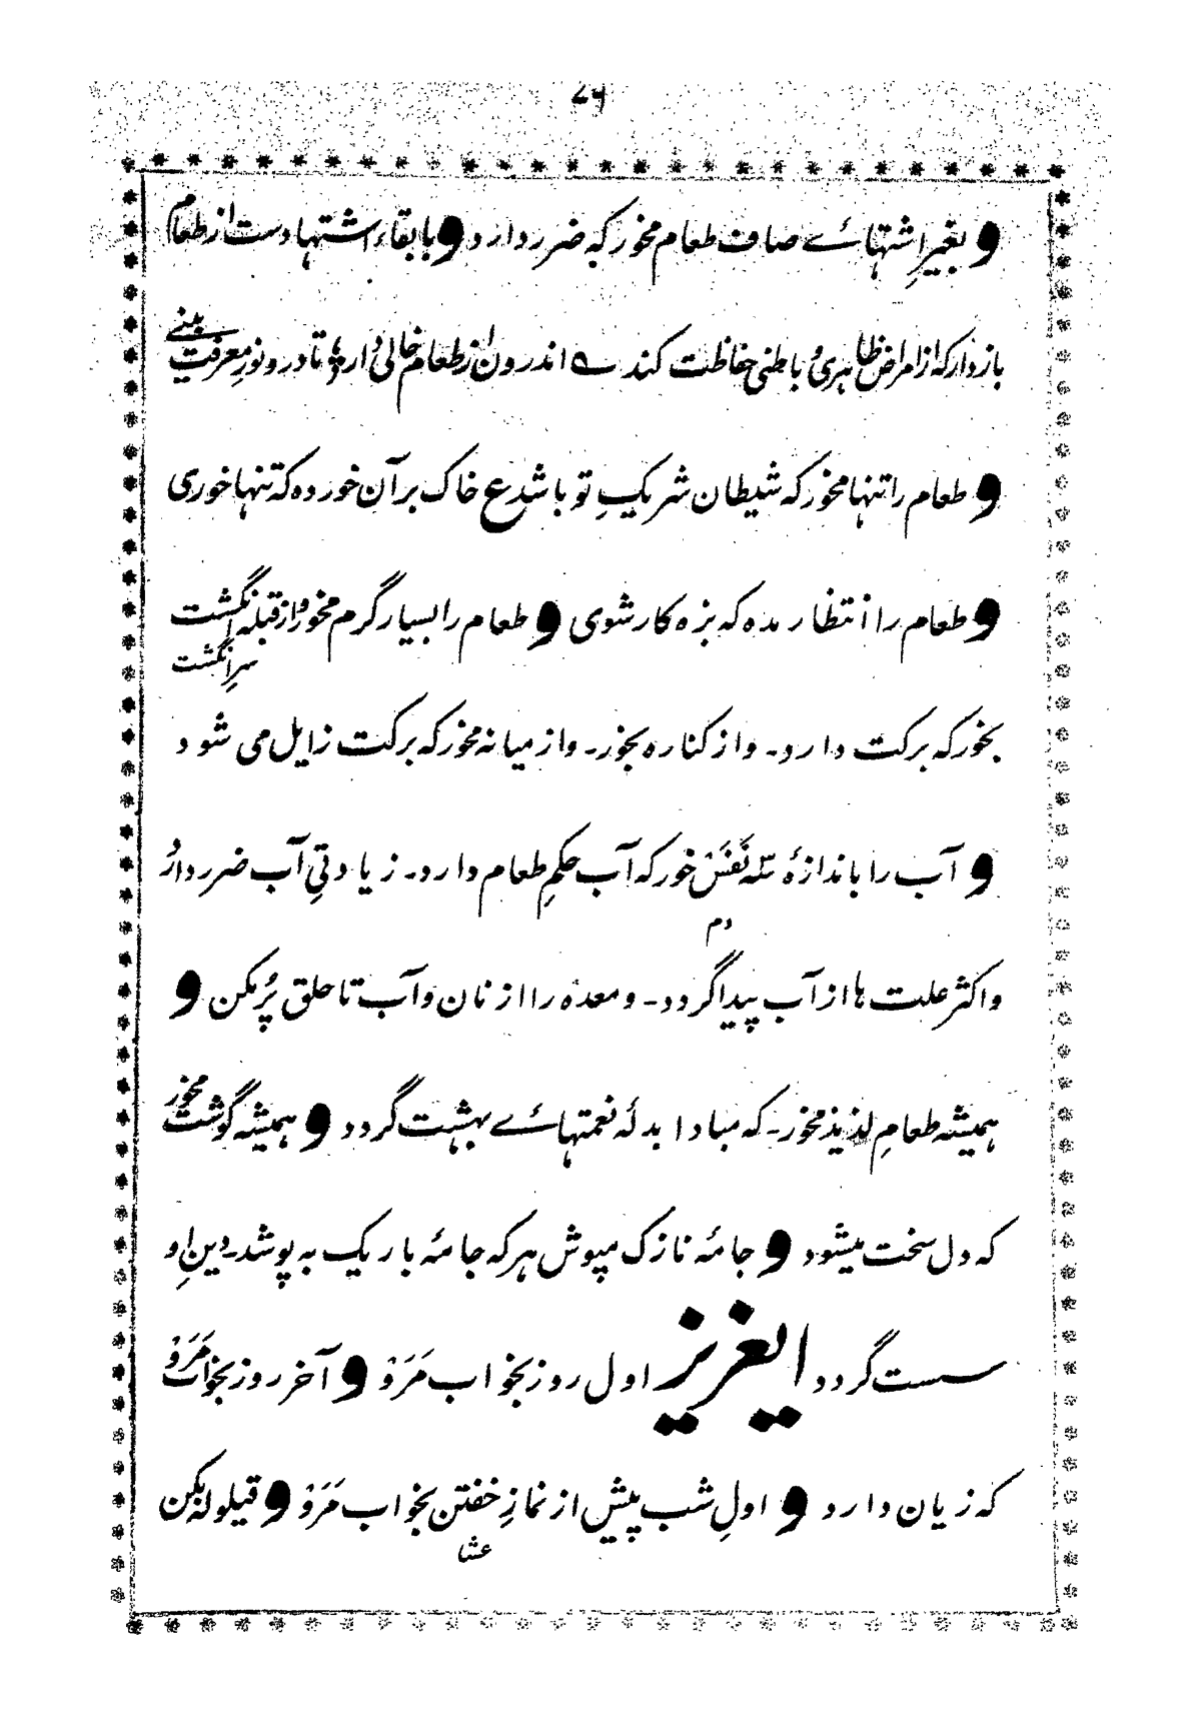 ۷۶
و بغیرِ اشتہائے صاف طعام مخور کہ ضرر دارد و با بقاء اشتہا دست از طعام
باز دار کہ از امراضِ ظاہری و باطنی حفاظت کند ے اندرون از طعام خالی دار ؛ تا درو نورِ معرفت بینی
و طعام را تنہا مخور کہ شیطان شریکِ تو باشد ع خاک بر آن خوردہ کہ تنہا خوری
و طعام را انتظار مدہ کہ بزہ کار شوی و طعام را بسیار گرم مخور و از قبلہ انگشت
سرِ انگشت
بخور کہ برکت دارد۔ و از کنارہ بخور۔ و از میانہ مخور کہ برکت زایل می شود
و آب را باندازۂ سّہ نَفَسْ خور کہ آب حکمِ طعام دارد۔ زیادتیِ آب ضرر دارد
دم
و اکثر علت ہا از آب پیدا گردد۔ و معدہ را از نان و آب تا حلق پُر مکن و
ہمیشہ طعامِ لذیذ مخور۔ کہ مبادا بدلۂ نعمتہائے بہشت گردد و ہمیشہ گوشت مخور
کہ دل سخت میشود و جامۂ نازک مپوش ہر کہ جامۂ باریک بہ پوشد۔ دینِ او
سست گردد ایعزیز اول روز بخواب مَرَوْ و آخر روز بخواب مَرَوْ
کہ زیان دارد و اولِ شب پیش از نمازِ خفتن بخواب مَرَوْ و قیلولہ بکن
عشا